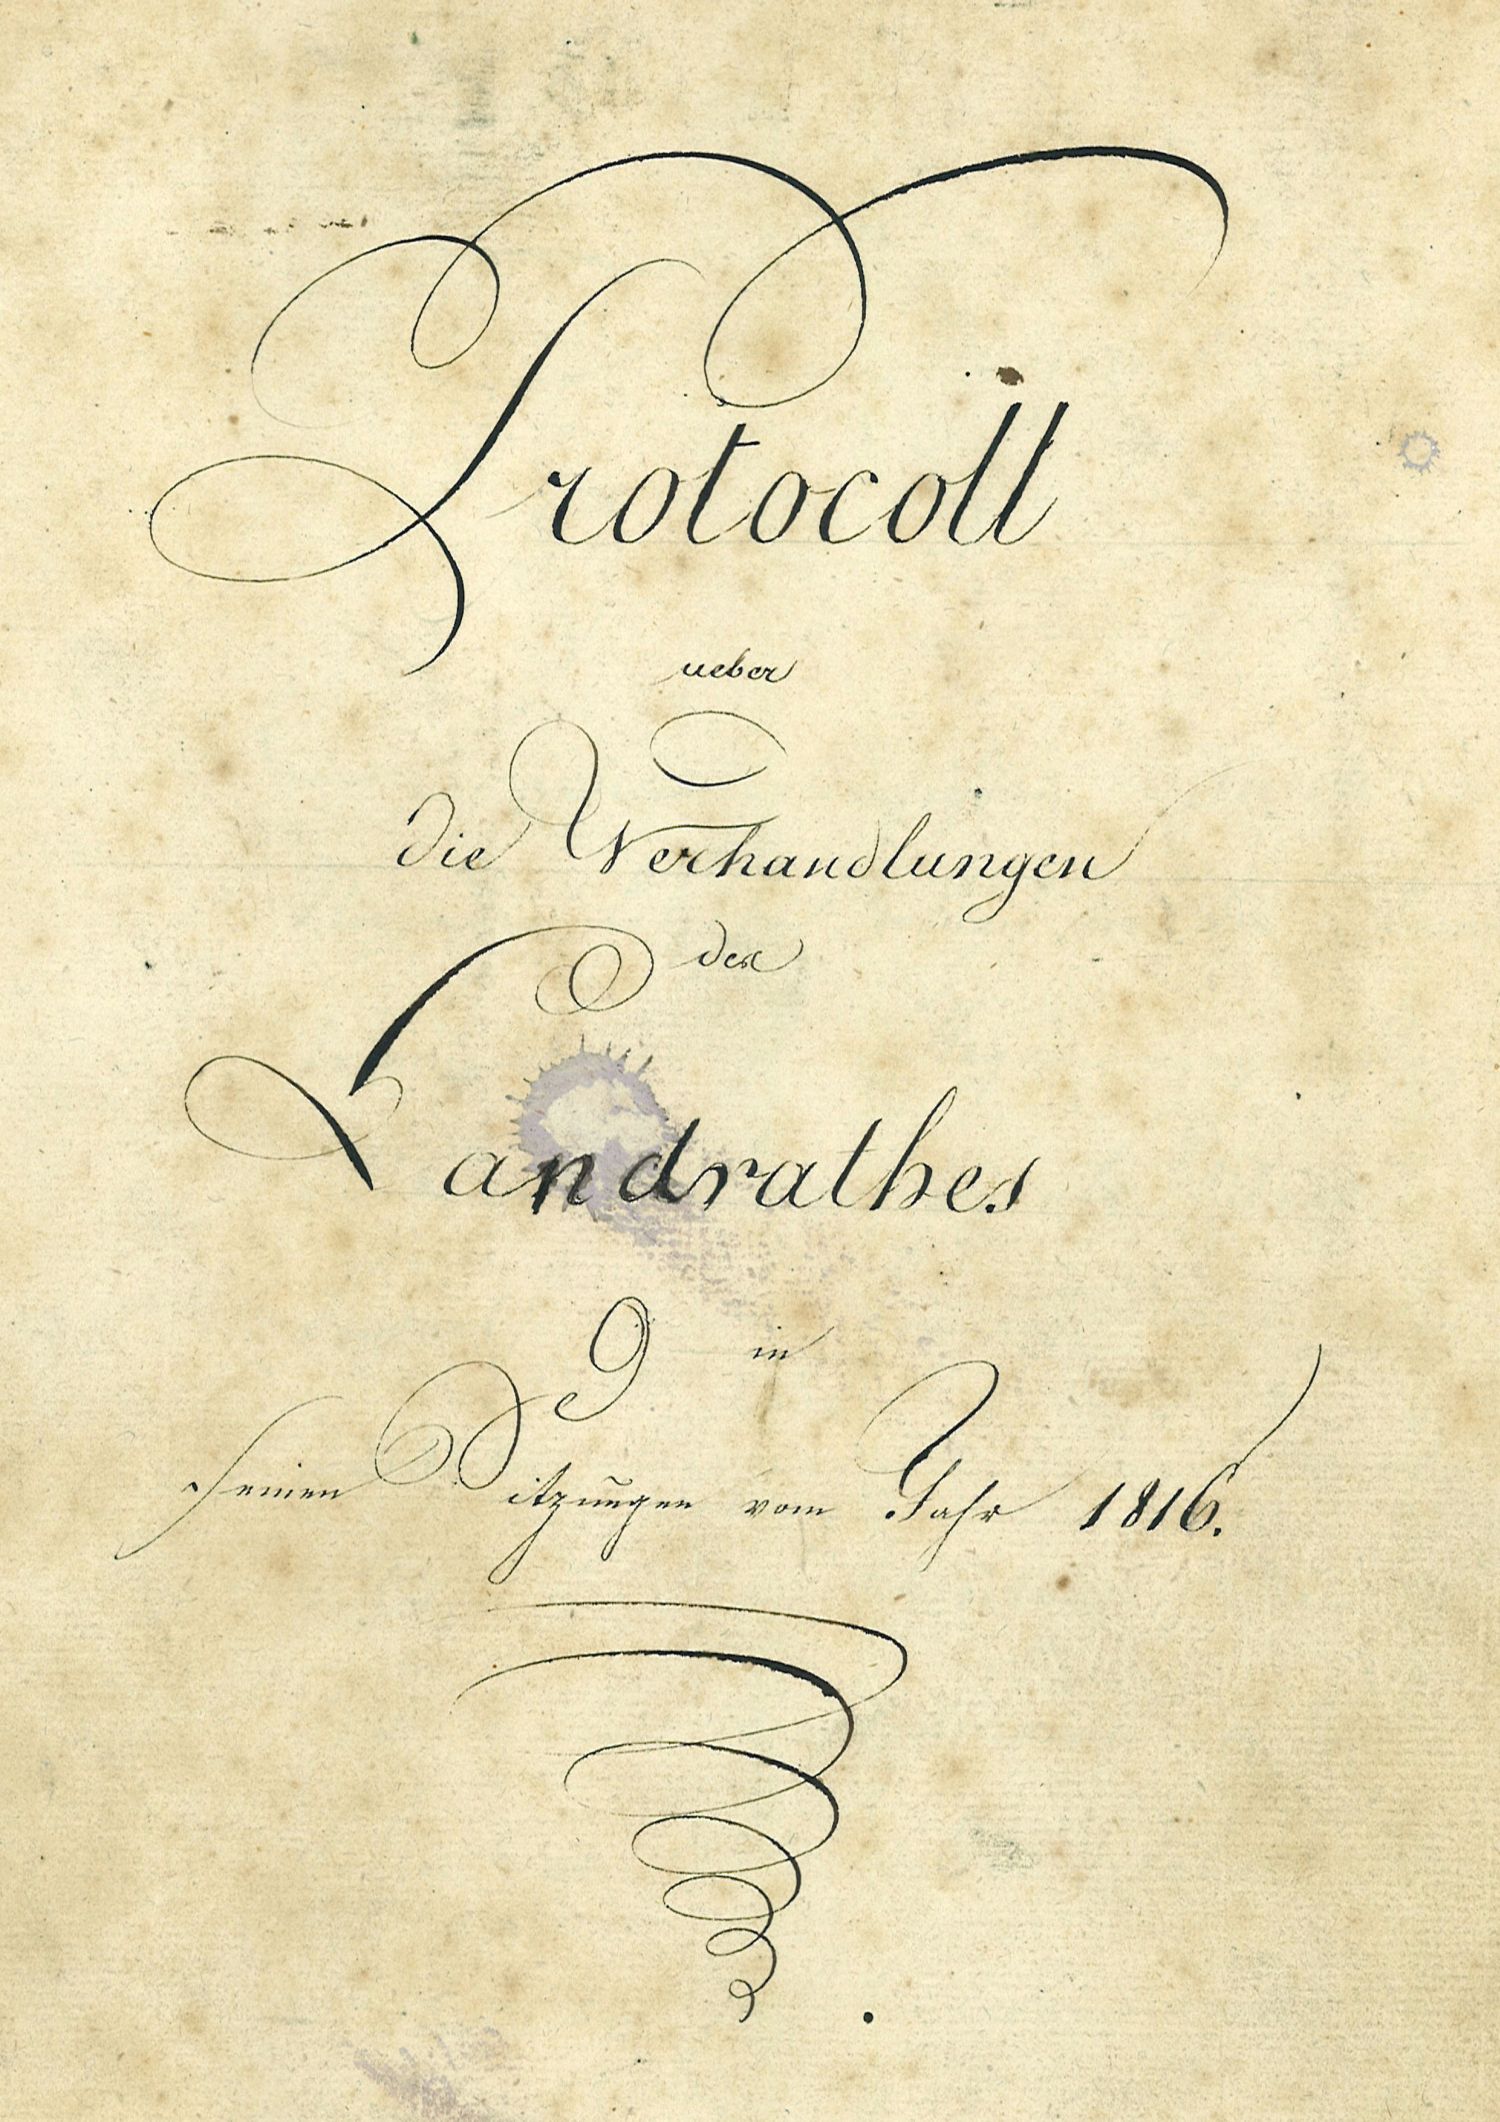 Protocoll
ueber
die Verhandlungen
des
Landrathes
in
seinen Sitzungen vom Jahr 1816.